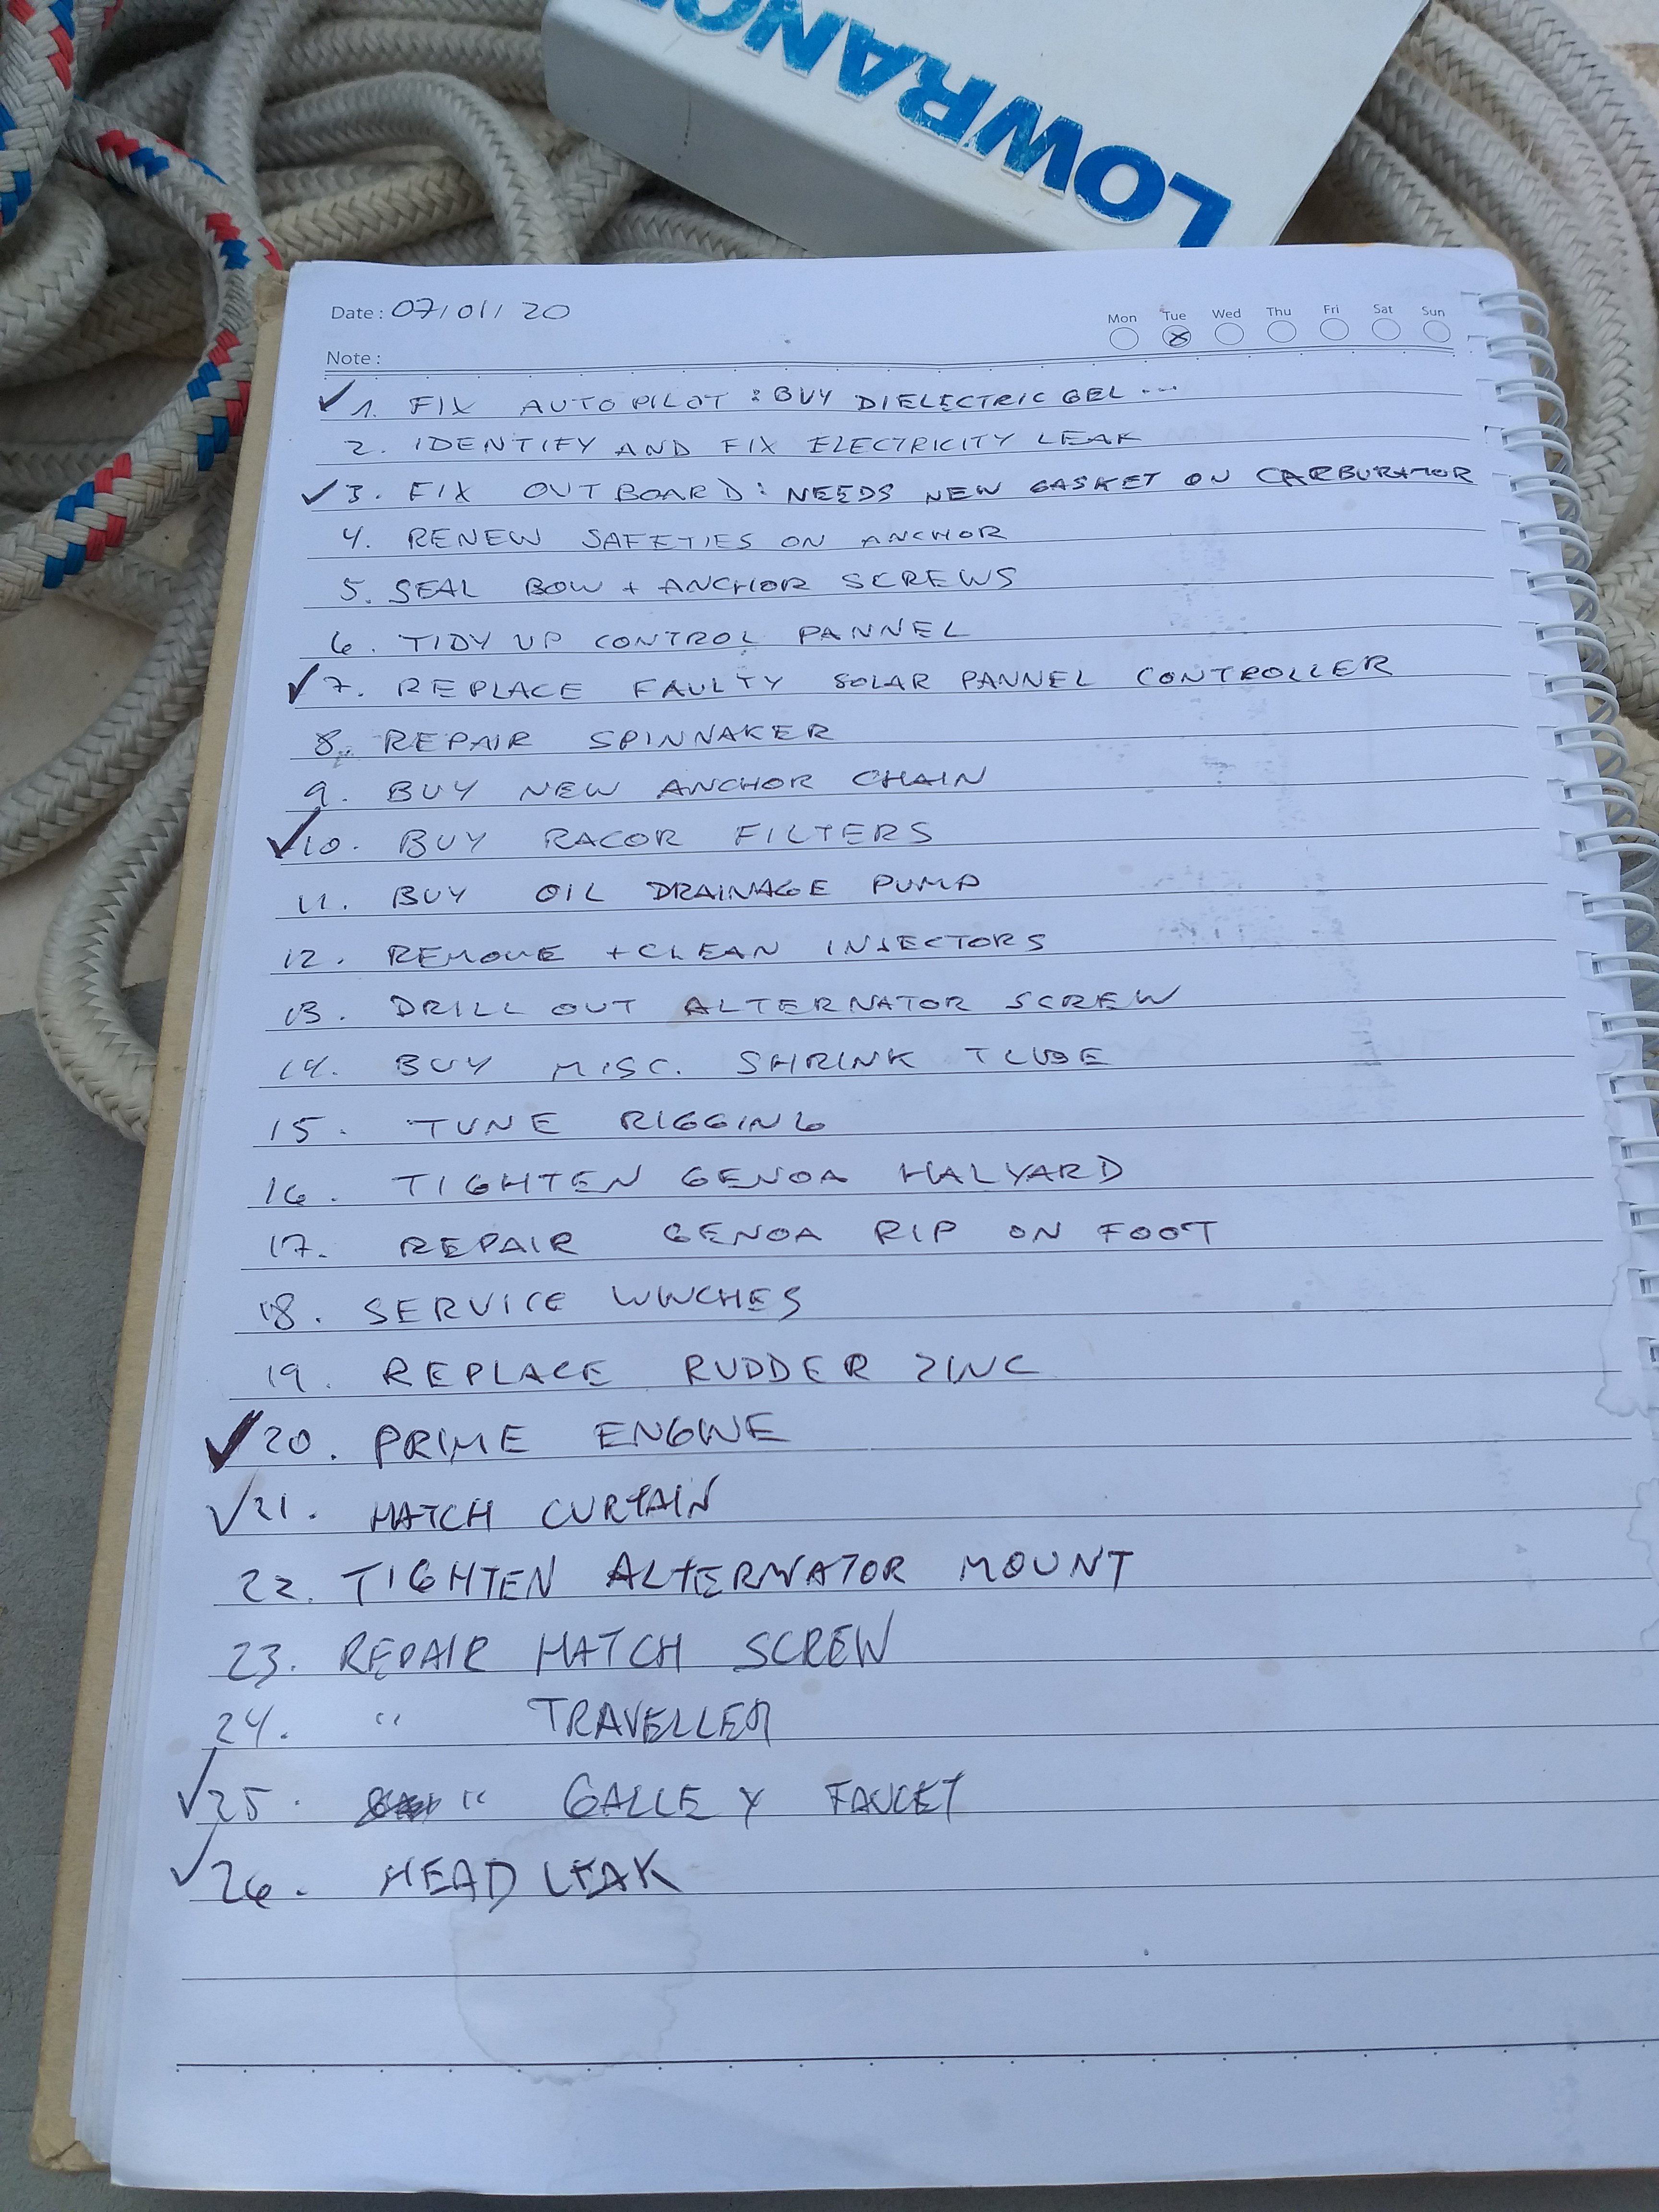 LOWRANC
Date: 07/01/20
Mon Tue Wed Thu Fri Sat Sun
Note:
✓ 1. FIX AUTOPILOT: BUY DIELECTRIC GEL ...
2. IDENTIFY AND FIX ELECTRICITY LEAK
✓ 3. FIX OUTBOARD: NEEDS NEW GASKET ON CARBURATOR
4. RENEW SAFETIES ON ANCHOR
5. SEAL BOW + ANCHOR SCREWS
6. TIDY UP CONTROL PANNEL
✓ 7. REPLACE FAULTY SOLAR PANNEL CONTROLLER
8. REPAIR SPINNAKER
9. BUY NEW ANCHOR CHAIN
✓ 10. BUY RACOR FILTERS
11. BUY OIL DRAINAGE PUMP
12. REMOVE + CLEAN INJECTORS
13. DRILL OUT ALTERNATOR SCREW
14. BUY MISC. SHRINK TUBE
15. TUNE RIGGING
16. TIGHTEN GENOA HALYARD
17. REPAIR GENOA RIP ON FOOT
18. SERVICE WINCHES
19. REPLACE RUDDER ZINC
✓ 20. PRIME ENGINE
✓ 21. HATCH CURTAIN
22. TIGHTEN ALTERNATOR MOUNT
23. REPAIR HATCH SCREW
24. " TRAVELLER
✓ 25. " GALLEY FAUCET
✓ 26. HEAD LEAK